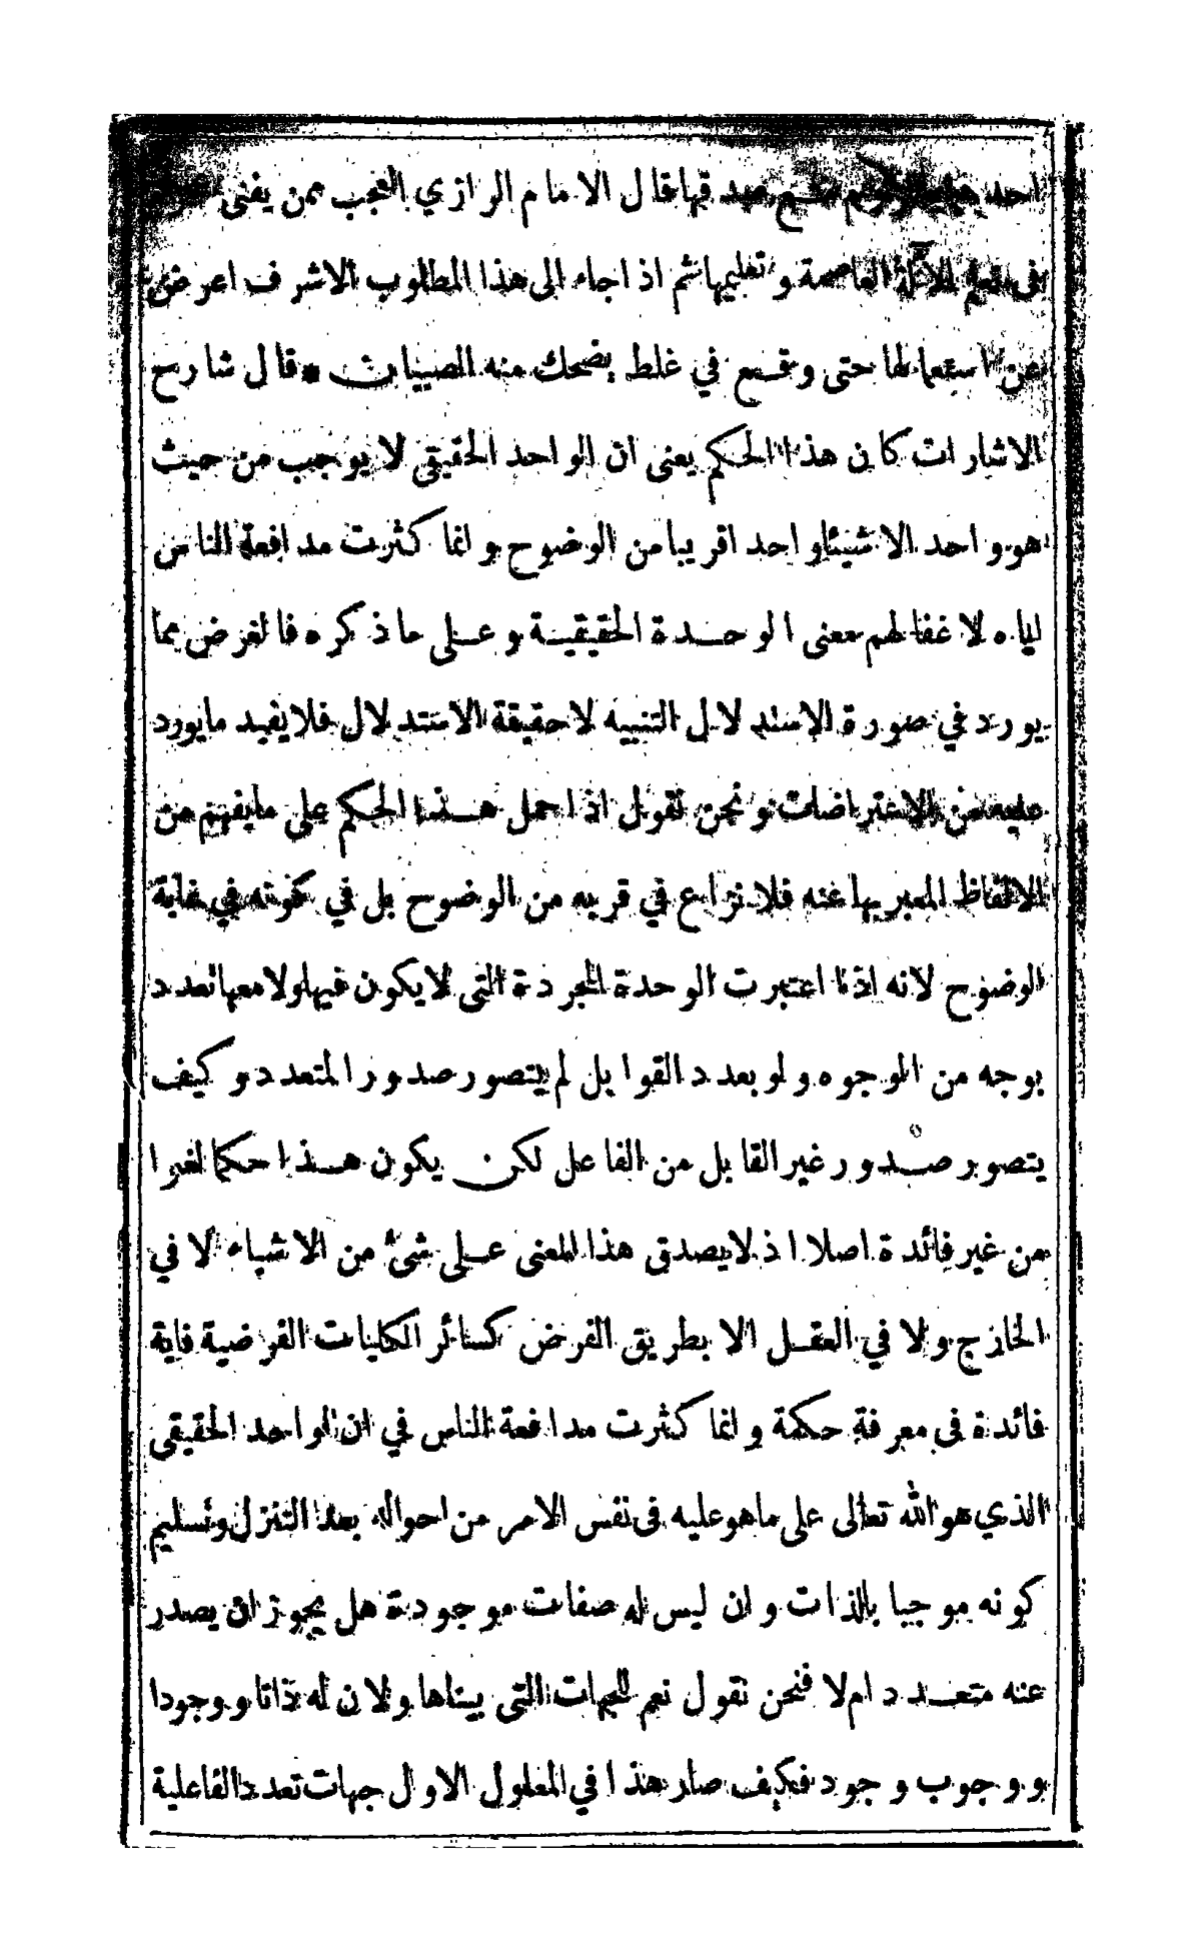 احد فيها قال الامام الرازي العجب ممن يفنى
فى تعلم الآلة العاصمة و تعليمها ثم اذا جاء الى هذا المطلوب الاشرف اعرض
عن استعمالها حتى وقع في غلط يضحك منه الصبيان * قال شارح
الاشارات كان هذا الحكم يعنى ان الواحد الحقيقي لا يوجب من حيث
هو واحد الا شيئا واحد اقريبا من الوضوح وانما كثرت مدافعة الناس
اياه لا غفالهم معنى الوحدة الحقيقية وعلى ما ذكره فالغرض مما
يورد في صورة الاستدلال التنبيه لا حقيقة الاستدلال فلا يفيد ما يورد
عليه من الاعتراضات و نحن نقول اذا حمل هذا الحكم على ما يفهم من
الالفاظ المعبر بها عنه فلا نزاع في قربه من الوضوح بل في كونه في غاية
الوضوح لانه اذا اعتبرت الوحدة المجردة التى لا يكون فيها ولا معها تعدد
بوجه من الوجوه ولو بعدد القوابل لم يتصور صدور المتعدد وكيف
يتصور صدور غير القابل من الفاعل لكن يكون هذا حكما لغوا
من غير فائدة اصلا اذ لا يصدق هذا المعنى على شئ من الاشياء لا في
الخارج ولا في العقل الا بطريق الفرض كسائر الكليات الفرضية فاية
فائدة فى معرفة حكمة وانما كثرت مدافعة الناس في ان الواحد الحقيقي
الذي هو الله تعالى على ما هو عليه فى نفس الامر من احواله بعد التنزل وتسليم
كونه موجبا بالذات وان ليس له صفات موجودة هل يجوز ان يصدر
عنه متعدد ام لا فنحن نقول نعم للجهات التى بيناها ولان له ذاتا ووجودا
ووجوب وجود فكيف صار هذا في المعلول الاول جهات تعدد الفاعلية